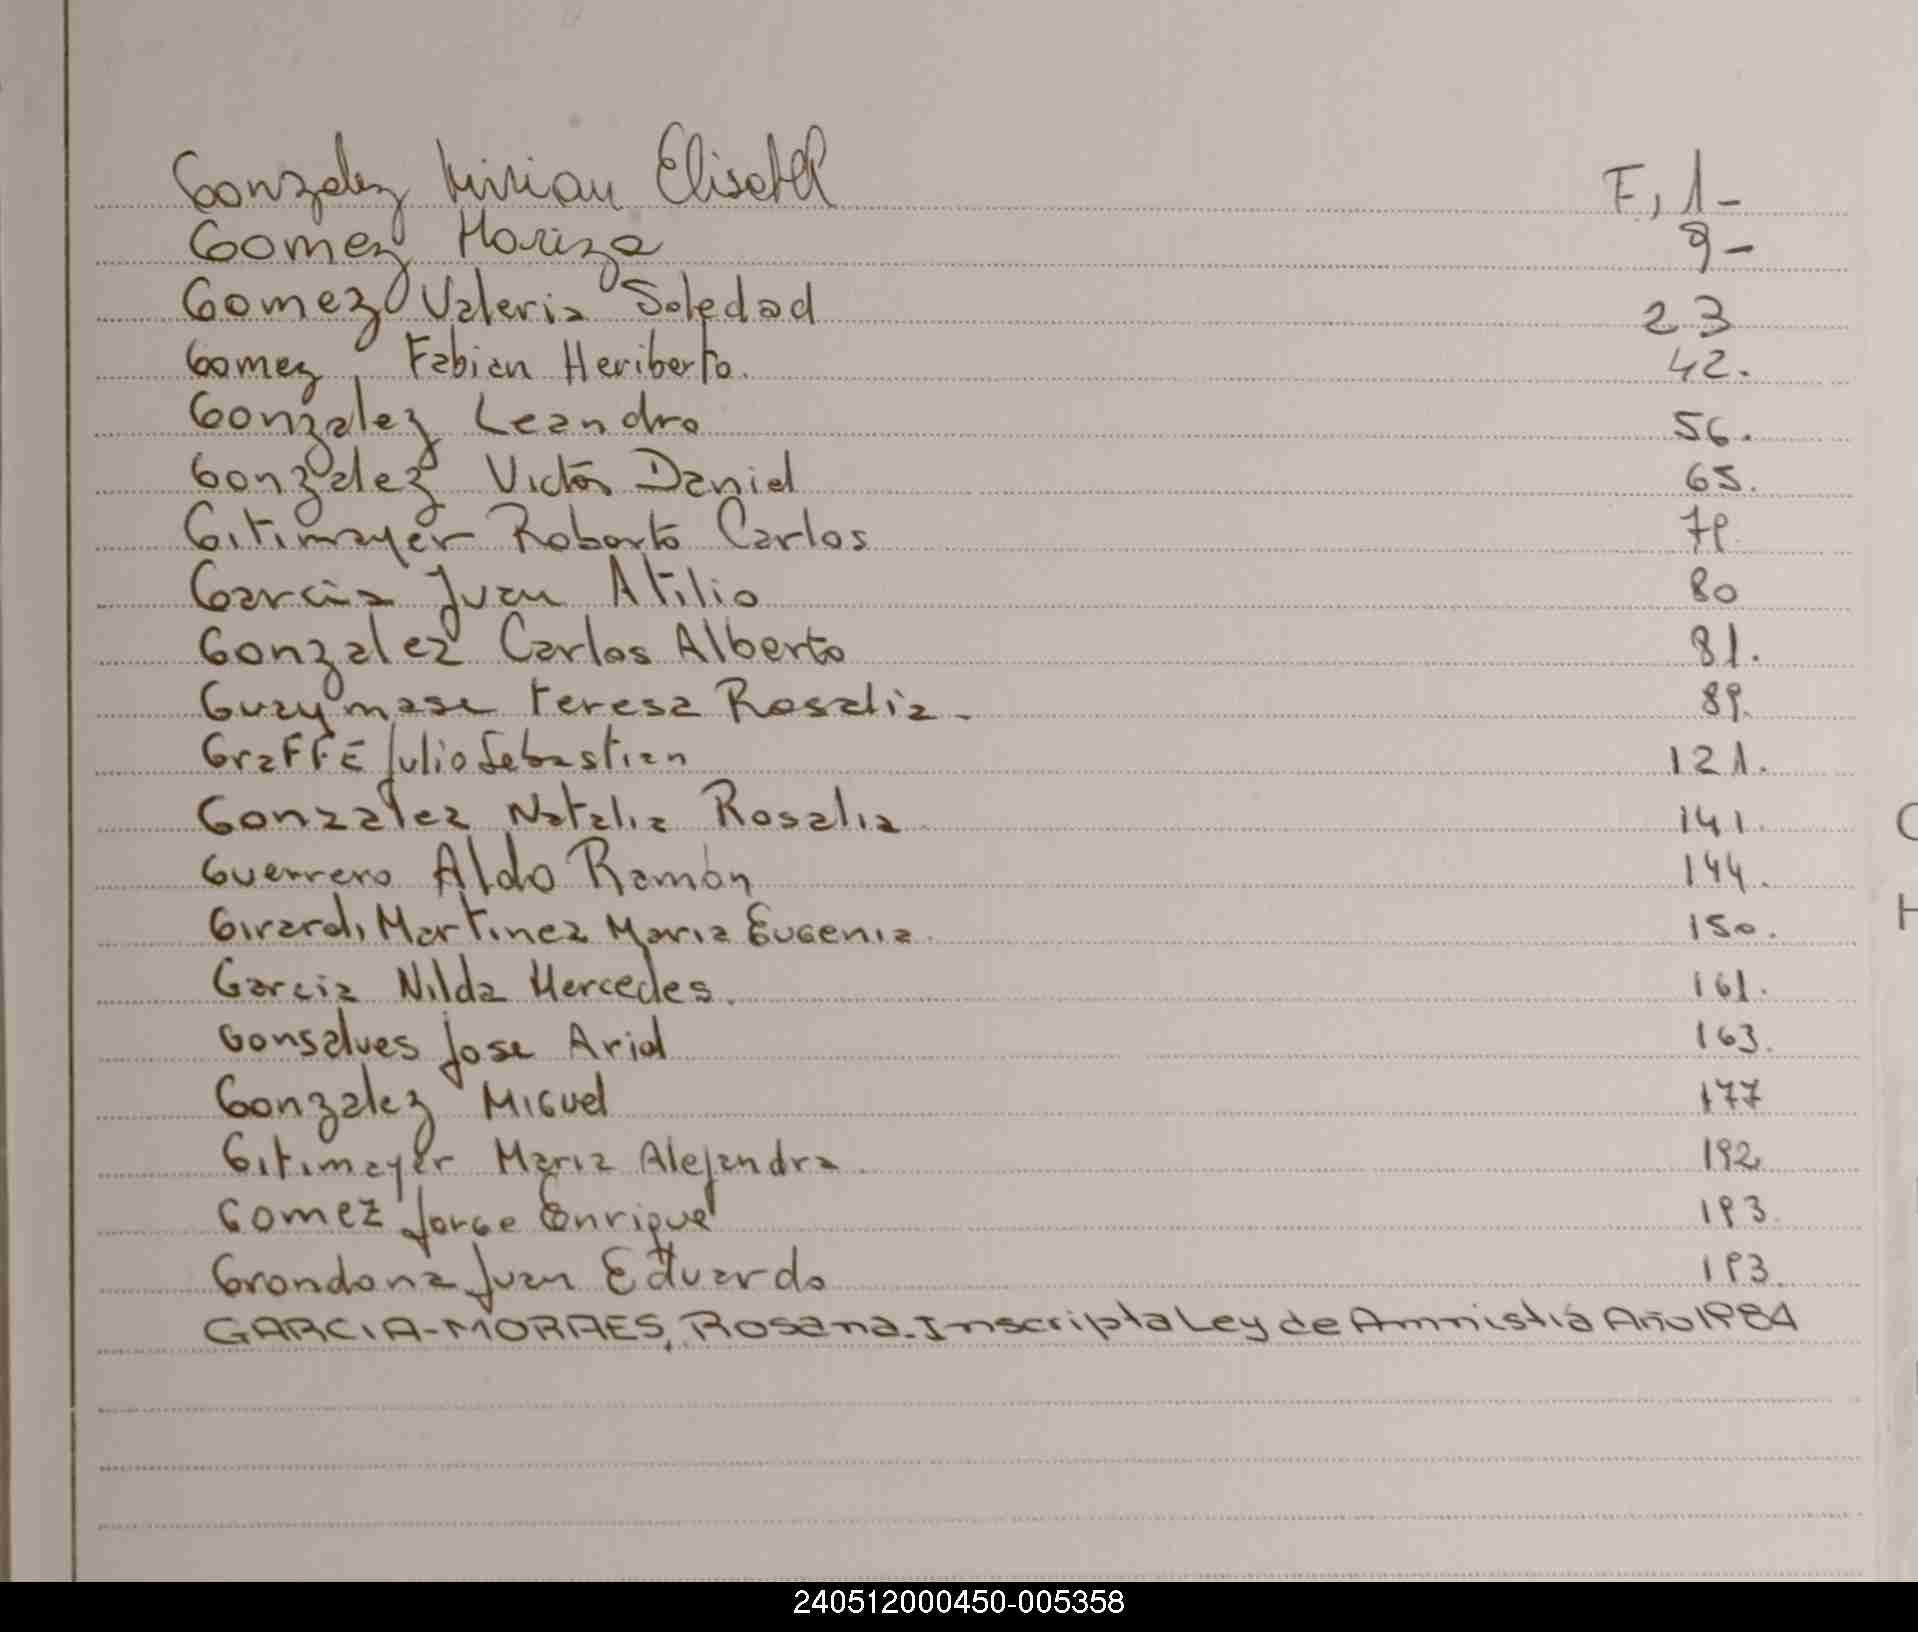 Gonzalez Mirian Elisabet F, 1-
Gomez Mariza 9-
Gomez Valeria Soledad 23
Gomez, Fabian Heriberto. 42.
Gonzalez Leandro 56.
Gonzalez Victor Daniel 65.
Gitimayer Roberto Carlos 79
Garcia Juan Atilio 80
Gonzalez Carlos Alberto 81.
Guaymase teresa Rosalia - 89.
GraFFE Julio Sebastian 121.
Gonzalez Natalia Rosalia 141.
Guerrero Aldo Ramón 144.
Girardi Martinez Maria Eugenia. 150.
Garcia Nilda Mercedes. 161.
Gonsalves Jose Ariel 163.
Gonzalez Miguel 177
Gitimayer Maria Alejandra. 192
Gomez Jorge Enrique 193.
Grondona Juan Eduardo 193.
GARCIA-MORAES, Rosana. Inscripta Ley de Amnistiá Año 1984
240512000450-005358